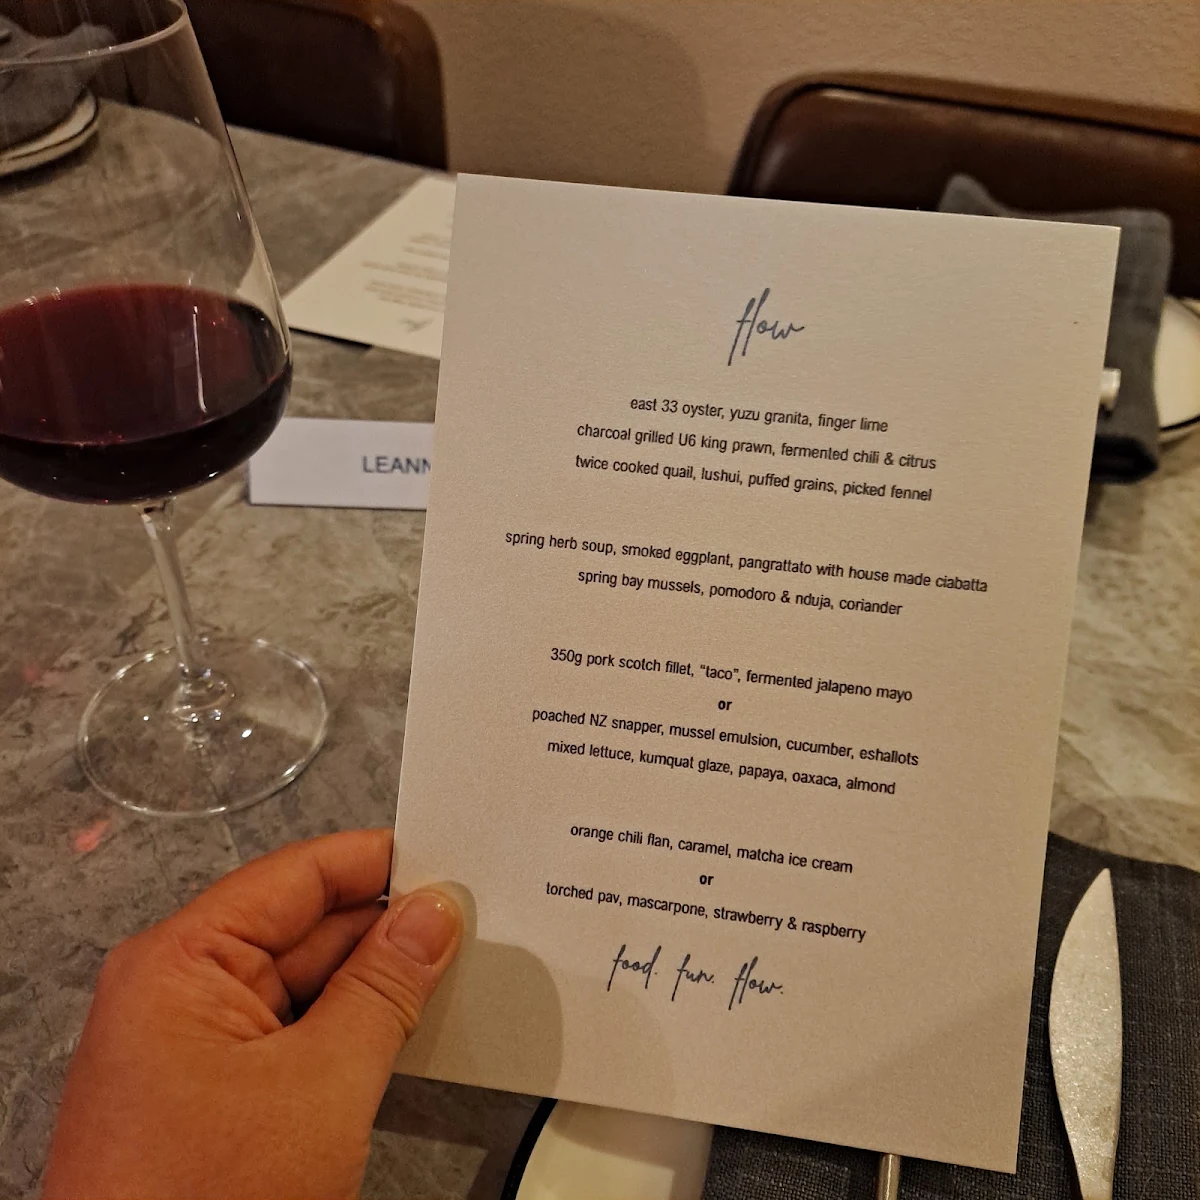 flow
east 33 oyster, yuzu granita, finger lime
charcoal grilled U6 king prawn, fermented chili & citrus
twice cooked quail, lushui, puffed grains, picked fennel
spring herb soup, smoked eggplant, pangrattato with house made ciabatta
spring bay mussels, pomodoro & nduja, coriander
350g pork scotch fillet, “taco”, fermented jalapeno mayo
or
poached NZ snapper, mussel emulsion, cucumber, eshallots
mixed lettuce, kumquat glaze, papaya, oaxaca, almond
orange chili flan, caramel, matcha ice cream
or
torched pav, mascarpone, strawberry & raspberry
food. fun. flow.
LEANN